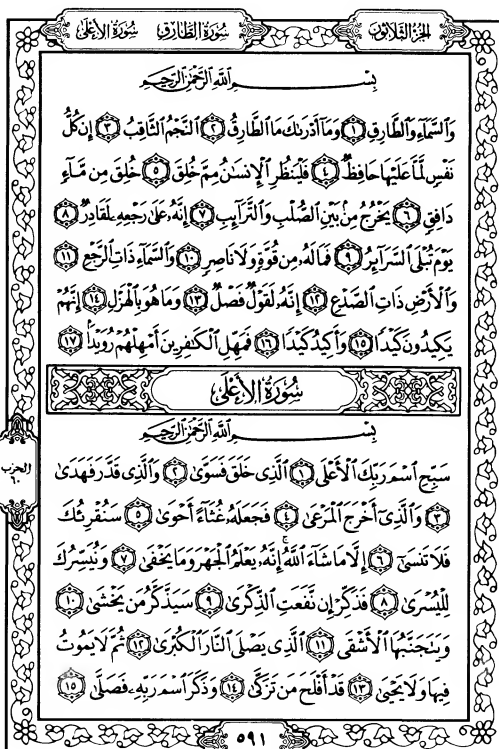 سُورَةُ الأَعْلَى سُورَةُ الطَّارِقِ الجُزءُ الثَّلَاثُونَ
بِسْمِ ٱللَّهِ ٱلرَّحْمَٰنِ ٱلرَّحِيمِ
وَٱلسَّمَآءِ وَٱلطَّارِقِ ١ وَمَآ أَدْرَىٰكَ مَا ٱلطَّارِقُ ٢ ٱلنَّجْمُ ٱلثَّاقِبُ ٣ إِن كُلُّ
نَفْسٍ لَّمَّا عَلَيْهَا حَافِظٌ ٤ فَلْيَنظُرِ ٱلْإِنسَٰنُ مِمَّ خُلِقَ ٥ خُلِقَ مِن مَّآءٍ
دَافِقٍ ٦ يَخْرُجُ مِنۢ بَيْنِ ٱلصُّلْبِ وَٱلتَّرَآئِبِ ٧ إِنَّهُۥ عَلَىٰ رَجْعِهِۦ لَقَادِرٌ ٨
يَوْمَ تُبْلَى ٱلسَّرَآئِرُ ٩ فَمَا لَهُۥ مِن قُوَّةٍ وَلَا نَاصِرٍ ١٠ وَٱلسَّمَآءِ ذَاتِ ٱلرَّجْعِ ١١
وَٱلْأَرْضِ ذَاتِ ٱلصَّدْعِ ١٢ إِنَّهُۥ لَقَوْلٌ فَصْلٌ ١٣ وَمَا هُوَ بِٱلْهَزْلِ ١٤ إِنَّهُمْ
يَكِيدُونَ كَيْدًا ١٥ وَأَكِيدُ كَيْدًا ١٦ فَمَهِّلِ ٱلْكَٰفِرِينَ أَمْهِلْهُمْ رُوَيْدًۢا ١٧
سُورَةُ الأَعْلَى
بِسْمِ ٱللَّهِ ٱلرَّحْمَٰنِ ٱلرَّحِيمِ
سَبِّحِ ٱسْمَ رَبِّكَ ٱلْأَعْلَى ١ ٱلَّذِى خَلَقَ فَسَوَّىٰ ٢ وَٱلَّذِى قَدَّرَ فَهَدَىٰ
٣ وَٱلَّذِىٓ أَخْرَجَ ٱلْمَرْعَىٰ ٤ فَجَعَلَهُۥ غُثَآءً أَحْوَىٰ ٥ سَنُقْرِئُكَ
فَلَا تَنسَىٰٓ ٦ إِلَّا مَا شَآءَ ٱللَّهُ ۚ إِنَّهُۥ يَعْلَمُ ٱلْجَهْرَ وَمَا يَخْفَىٰ ٧ وَنُيَسِّرُكَ
لِلْيُسْرَىٰ ٨ فَذَكِّرْ إِن نَّفَعَتِ ٱلذِّكْرَىٰ ٩ سَيَذَّكَّرُ مَن يَخْشَىٰ ١٠
وَيَتَجَنَّبُهَا ٱلْأَشْقَى ١١ ٱلَّذِى يَصْلَى ٱلنَّارَ ٱلْكُبْرَىٰ ١٢ ثُمَّ لَا يَمُوتُ
فِيهَا وَلَا يَحْيَىٰ ١٣ قَدْ أَفْلَحَ مَن تَزَكَّىٰ ١٤ وَذَكَرَ ٱسْمَ رَبِّهِۦ فَصَلَّىٰ ١٥
الحزب
٦٠
٥٩١